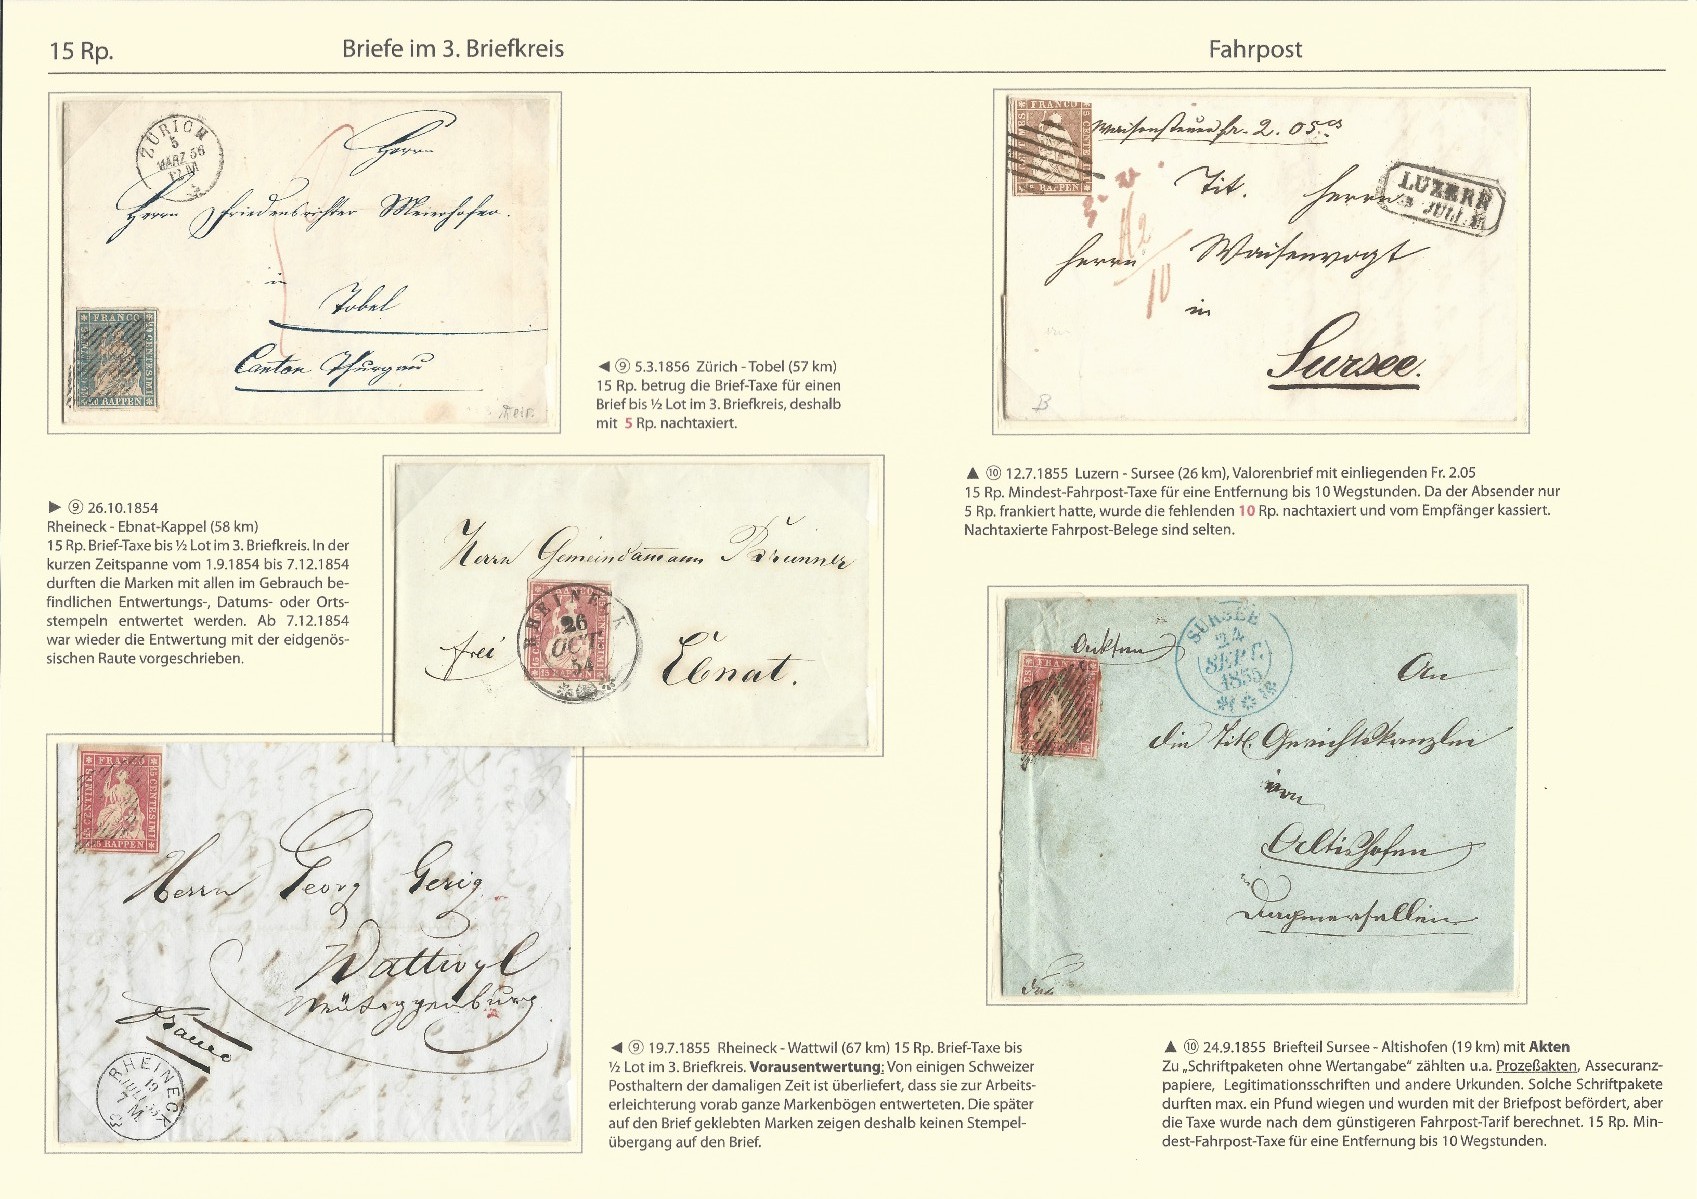 15 Rp.
Briefe im 3. Briefkreis
Fahrpost
ZÜRICH
5
MÄRZ 56
Herrn
Herrn Friedensrichter Meierhofer.
in
Tobel
Canton Thurgau
FRANCO
RAPPEN
◄ ⑨ 5.3.1856 Zürich - Tobel (57 km)
15 Rp. betrug die Brief-Taxe für einen
Brief bis ½ Lot im 3. Briefkreis, deshalb
mit 5 Rp. nachtaxiert.
► ⑨ 26.10.1854
Rheineck - Ebnat-Kappel (58 km)
15 Rp. Brief-Taxe bis ½ Lot im 3. Briefkreis. In der
kurzen Zeitspanne vom 1.9.1854 bis 7.12.1854
durften die Marken mit allen im Gebrauch be-
findlichen Entwertungs-, Datums- oder Orts-
stempeln entwertet werden. Ab 7.12.1854
war wieder die Entwertung mit der eidgenös-
sischen Raute vorgeschrieben.
Herrn Gemeindammann Brunner
frei
Ebnat.
RHEINECK
26
OCT
54
15 RAPPEN
FRANCO
15 RAPPEN
Herrn Georg Gerig
Wattwyl
Franco
RHEINECK
19
JULI 55
7 M.
◄ ⑨ 19.7.1855 Rheineck - Wattwil (67 km) 15 Rp. Brief-Taxe bis
½ Lot im 3. Briefkreis. Vorausentwertung: Von einigen Schweizer
Posthaltern der damaligen Zeit ist überliefert, dass sie zur Arbeits-
erleichterung vorab ganze Markenbögen entwerteten. Die später
auf den Brief geklebten Marken zeigen deshalb keinen Stempel-
übergang auf den Brief.
FRANCO
RAPPEN
Waisensteuer fr. 2. 05 cs
Tit. Herrn
LUZERN
JULI
Herrn Waisenvogt
10
in
Sursee.
▲ ⑩ 12.7.1855 Luzern - Sursee (26 km), Valorenbrief mit einliegenden Fr. 2.05
15 Rp. Mindest-Fahrpost-Taxe für eine Entfernung bis 10 Wegstunden. Da der Absender nur
5 Rp. frankiert hatte, wurde die fehlenden 10 Rp. nachtaxiert und vom Empfänger kassiert.
Nachtaxierte Fahrpost-Belege sind selten.
SURSEE
24
SEPT.
1855
FRANCO
An
die Titl. Gerichtskanzlei
von
Altishofen
Dagmersellen
▲ ⑩ 24.9.1855 Briefteil Sursee - Altishofen (19 km) mit Akten
Zu „Schriftpaketen ohne Wertangabe" zählten u.a. Prozeßakten, Assecuranz-
papiere, Legitimationsschriften und andere Urkunden. Solche Schriftpakete
durften max. ein Pfund wiegen und wurden mit der Briefpost befördert, aber
die Taxe wurde nach dem günstigeren Fahrpost-Tarif berechnet. 15 Rp. Min-
dest-Fahrpost-Taxe für eine Entfernung bis 10 Wegstunden.